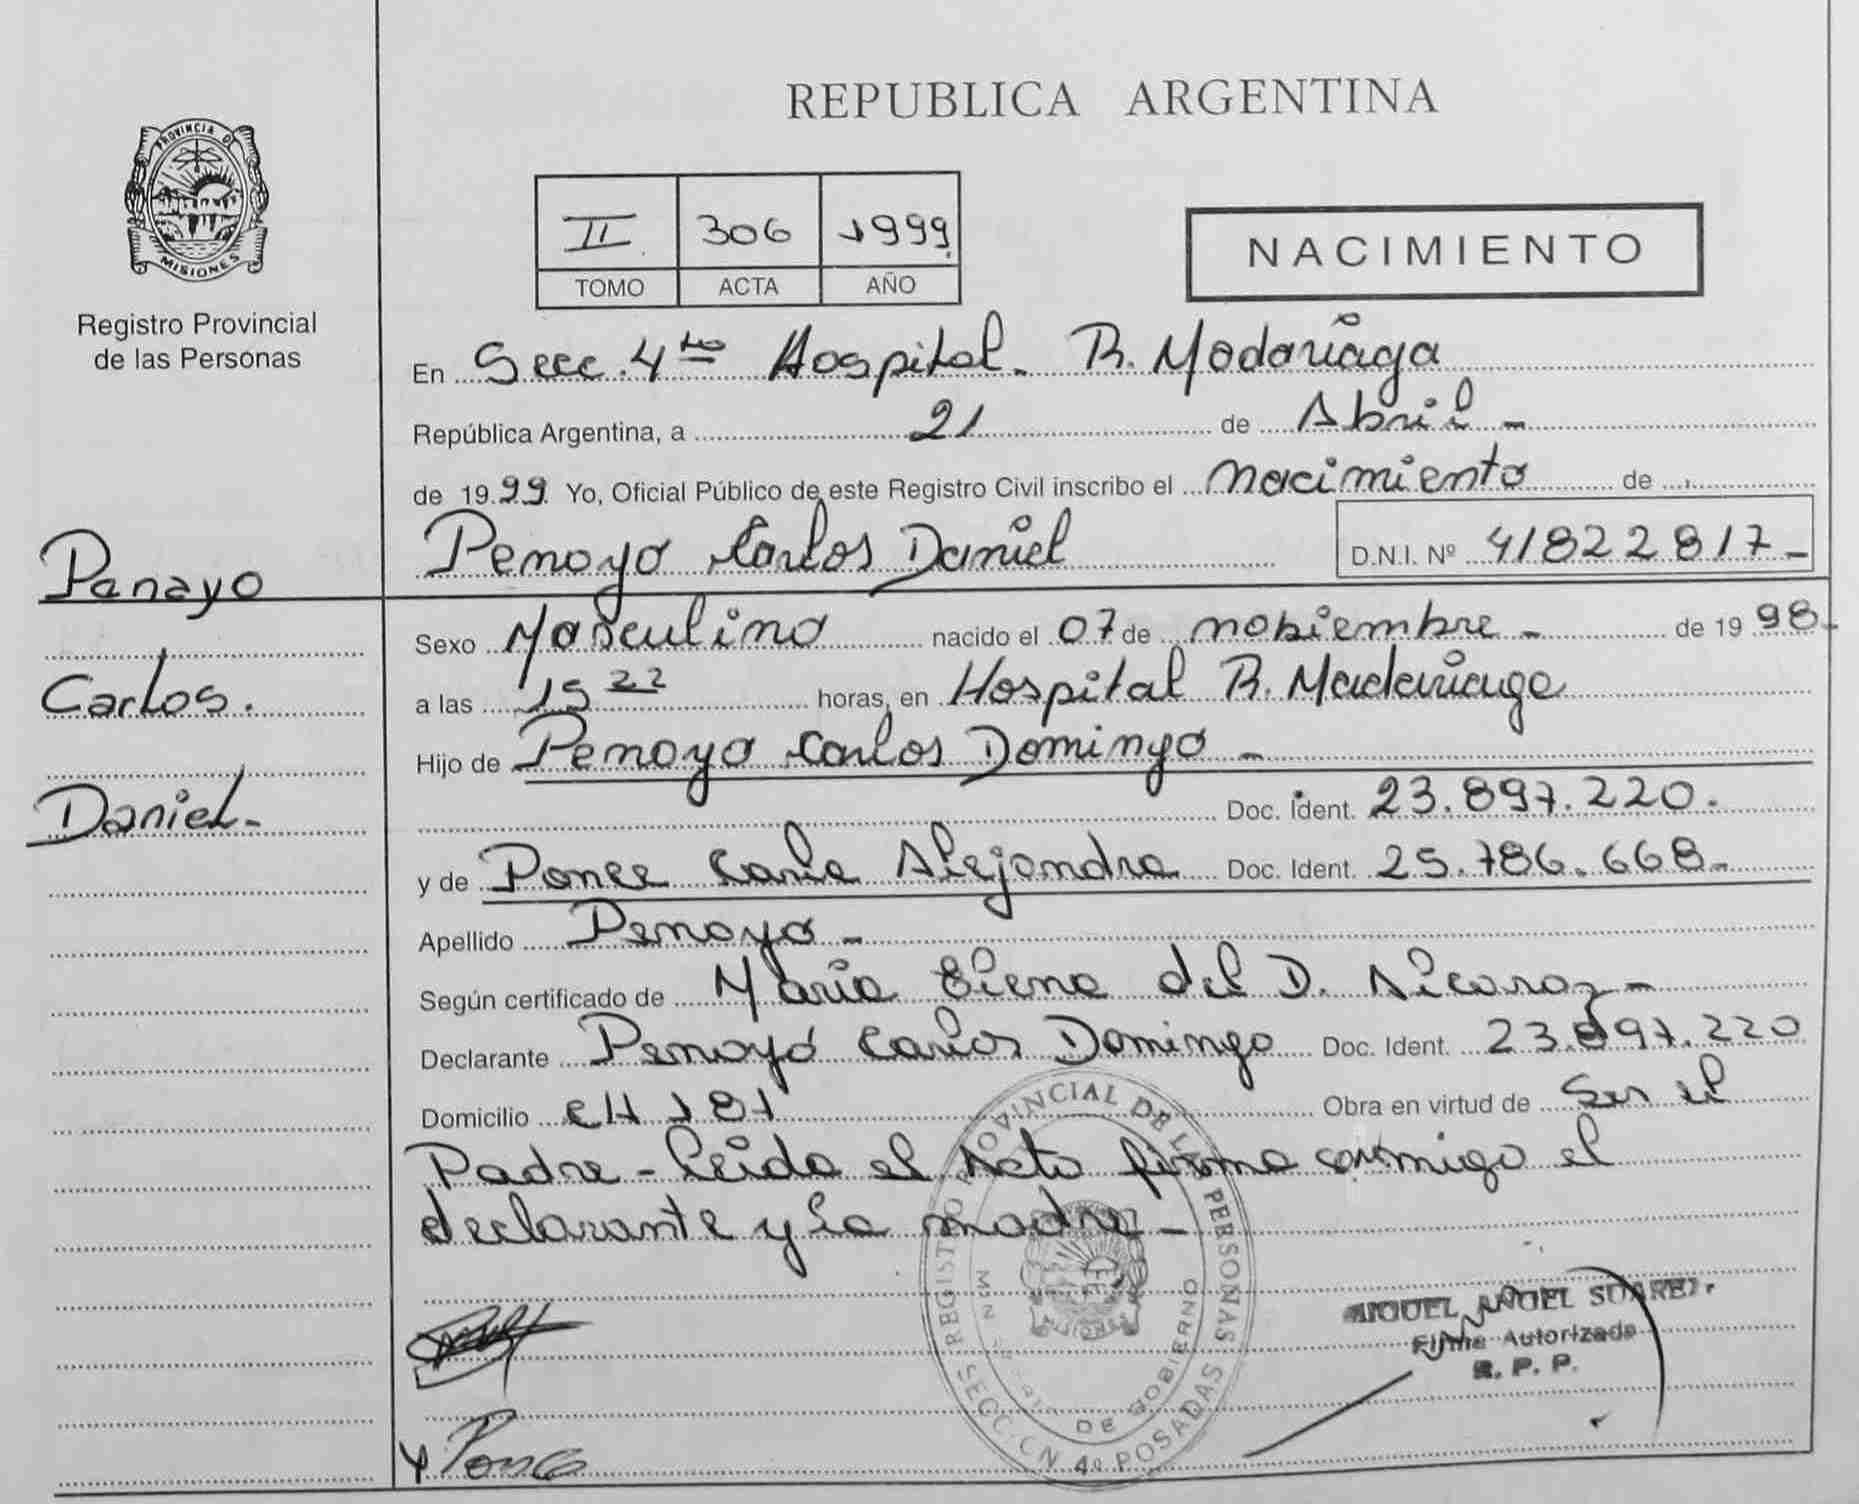 REPUBLICA ARGENTINA
PROVINCIA DE
MISIONES
Registro Provincial
de las Personas
II 306 1999
TOMO ACTA AÑO
NACIMIENTO
En Secc. 4ta Hospital. R. Madariaga
República Argentina, a 21 de Abril -
de 19 99 Yo, Oficial Público de este Registro Civil inscribo el nacimiento de
Penayo Carlos Daniel D.N.I. Nº 41822817-
Panayo
Carlos.
Daniel-
Sexo Masculino nacido el 07 de nobiembre - de 19 98-
a las 15 22 horas, en Hospital R. Madariaga
Hijo de Penayo Carlos Domingo -
Doc. Ident. 23.897.220.
y de Ponce Carla Alejandra Doc. Ident. 25.786.668-
Apellido Penayo -
Según certificado de María Elena del D. Alcaraz -
Declarante Penayo Carlos Domingo Doc. Ident. 23.897.220
Domicilio CH 181 Obra en virtud de Ser el
Padre - leida el Acta firma conmigo el
declarante y la madre -
REGISTRO PROVINCIAL DE LAS PERSONAS
DE GOBIERNO
SECC. CN 4º POSADAS
MIGUEL ANGEL SUAREZ
Firma Autorizada
R. P. P.
Ponce